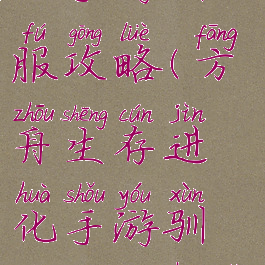 fú gōng lüè fāng
服攻略(方
zhōu shēng cún jìn
舟生存进
huà shǒu yóu xùn
化手游驯